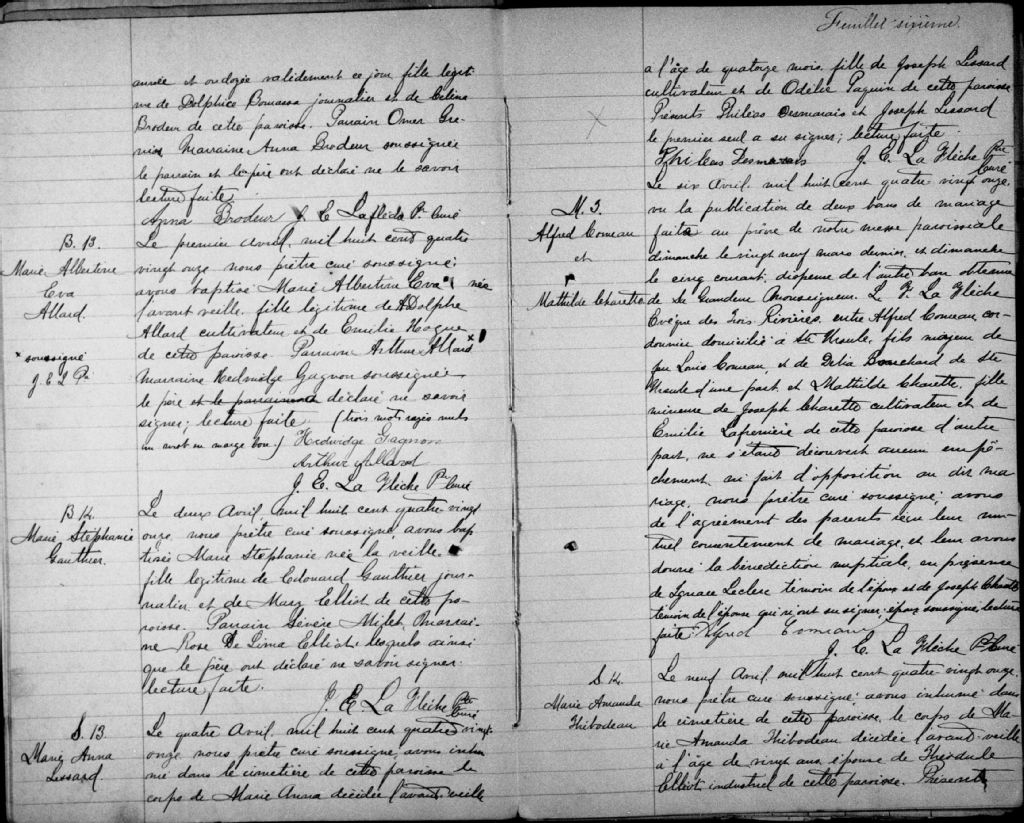 année et ondoyée validement ce jour, fille légiti
me de Dolphice Comassa journalier et de Célina
Brodeur de cette paroisse. Parrain Omer Gre-
nier Marraine Anna Brodeur soussignée
le parrain et le père ont déclaré ne le savoir
lecture faite.
Anna Brodeur J. E. Laflèche Ptre Curé
B. 13.
Marie Albertine
Eva
Allard.
Le premier Avril, mil huit cent quatre
vingt onze nous prêtre curé soussigné
avons baptisé Marie Albertine Eva née
l'avant veille, fille légitime de ADolphe
Allard cultivateur et de Emilie Hogue
de cette paroisse. Parrain Arthur Allard x
x soussigné
J. E L Ptre
marraine Hedwidge Gagnon soussignée
le père et le parrain ont déclaré ne savoir
signer; lecture faite (trois mots rayés nuls
un mot en marge bon.) Hedwidge Gagnon
Arthur Allard
J. E. La Flèche Ptre Curé
B 14.
Marie Stéphanie
Gauthier.
Le deux Avril, mil huit cent quatre vingt
onze nous prêtre curé soussigné, avons bap
tisés Marie Stéphanie née la veille
fille légitime de Edouard Gauthier jour-
nalier et de Mary Elliot de cette pa-
roisse. Parrain Sévère Miclet Marrai-
ne Rose De Lima Elliot, lesquels ainsi
que le père ont déclaré ne savoir signer.
lecture faite.
J. E La Flèche Ptre Curé
S. 13
Marie Anna
Lessard.
Le quatre Avril, mil huit cent quatre vingt
onze nous prêtre curé soussigné avons inhu
mé dans le cimetière de cette paroisse le
corps de Marie Anna décédée l'avant veille
Feuillet sixième.
a l'âge de quatorze mois, fille de Joseph Lessard
cultivateur et de Odélie Paquin de cette paroisse
Présents Philéas Desmarais et Joseph Lessard
le premier seul a su signer; lecture faite.
Phileas Desmarais J. E. La Flèche Ptre Curé
M. 3.
Alfred Comeau
et
Mathilde Charette
Le six Avril, mil huit cent quatre vingt onze,
vu la publication de deux bans de mariage
faite au prône de notre messe paroissiale
dimanche le vingt neuf mars dernier, et dimanche
le cinq courant, dispense de l'autre ban obtenue
de Sa Grandeur Monseigneur. L. F. La Flèche
Evêque des Trois Rivières, entre Alfred Comeau, cor-
donnier domicilié à Ste Ursule, fils majeur de
feu Louis Comeau, et de Delia Bouchard de Ste
Ursule d'une part, et Mathilde Charette, fille
mineure de Joseph Charette cultivateur et de
Emilie Lafrenière de cette paroisse d'autre
part, ne s'étant découvert aucun empê-
chement, ni fait d'opposition au dit ma
riage, nous prêtre curé soussigné; avons
de l'agrément des parents reçu leur mu-
tuel consentement de mariage, et leur avons
donné la bénédiction nuptiale, en présence
de Ignace Leclerc témoin de l'époux et de Joseph Charette
temoin de l'épouse qui n'ont su signer; époux soussigné, lecture
faite Alfred Comeau
J. E. La Flèche Ptre Curé
S 14.
Marie Amanda
Thibodeau
Le neuf Avril, mil huit cent quatre vingt onze.
nous prêtre curé soussigné avons inhumé dans
le cimetière de cette paroisse, le corps de Ma-
rie Amanda Thibodeau décédée l'avant-veille
a l'âge de vingt ans, épouse de Théodule
Elliot, industriel de cette paroisse. Présents